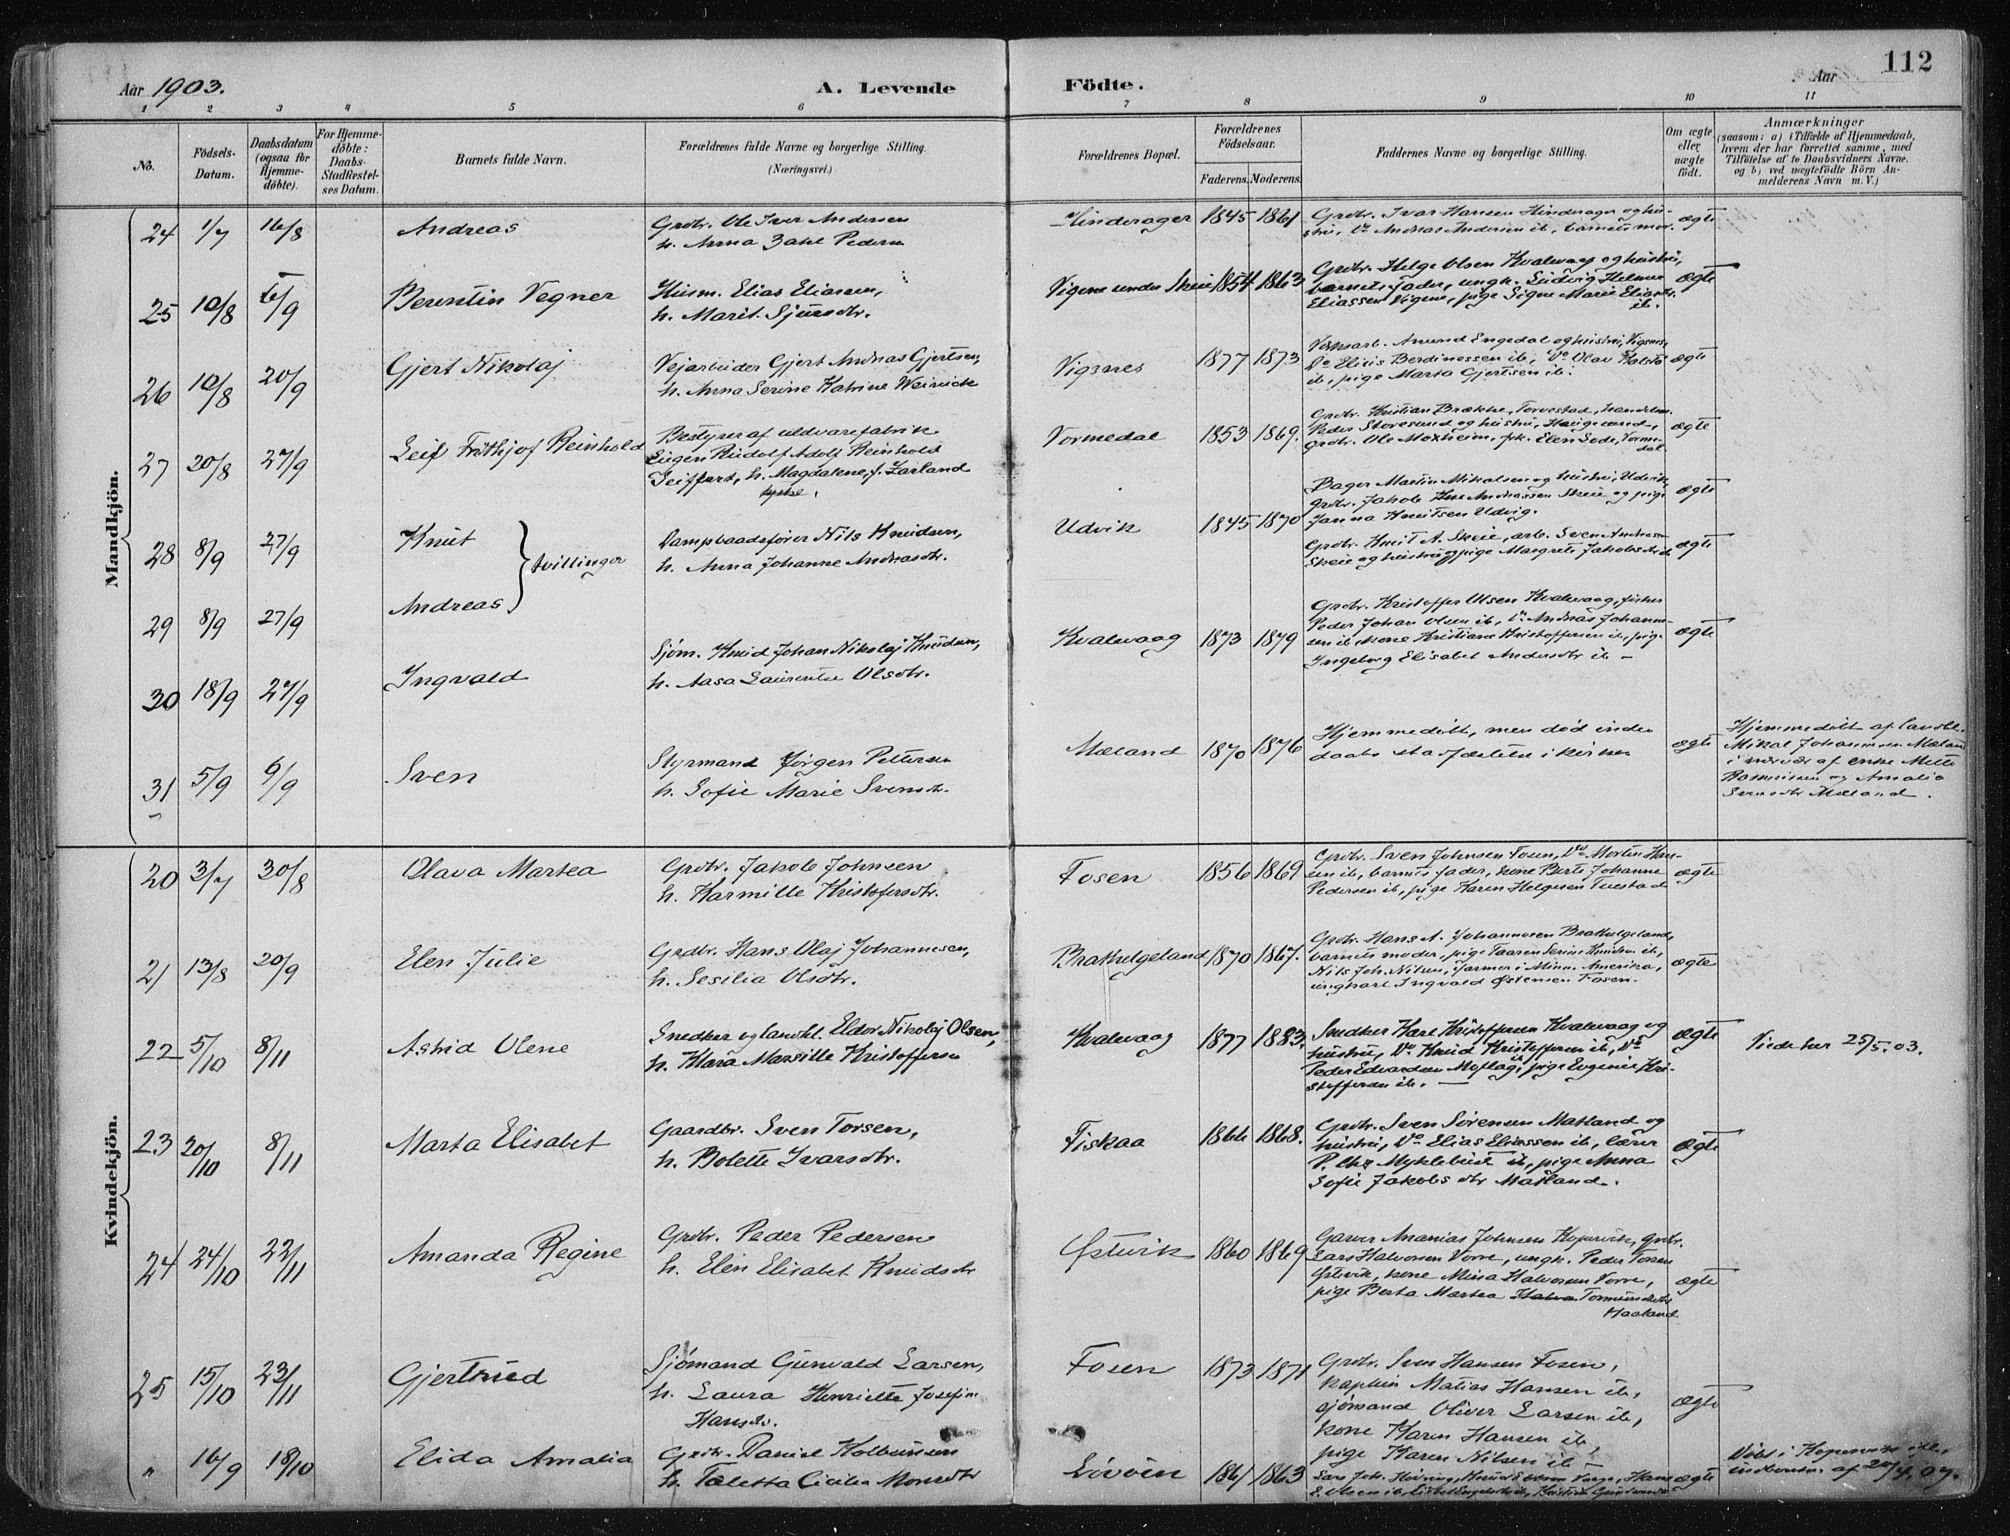 112
Aar 1903.
A. Levende
Födte.
Aar
1 2 3 4 5 6 7 8 9 10 11
No.
Födsels-
Datum.
Daabsdatum
(ogsaa for
Hjemme-
döbte).
For Hjemme-
döbte:
Daabs-
Stadfæstel-
ses Datum.
Barnets fulde Navn.
Forældrenes fulde Navne og borgerlige Stilling.
(Næringsvei.)
Forældrenes Bopæl.
Forældrenes
Födselsaar.
Faderens. Moderens.
Faddernes Navne og borgerlige Stilling.
Om ægte
eller
uægte
födt.
Anmærkninger
(saasom: a) i Tilfælde af Hjemmedaab,
hvem der har forrettet samme, med
Tilföielse af to Daabsvidners Navne.
og b) ved uægtefödte Börn An-
melderens Navn m. V.)
Mandkjön.
24 1/7 16/8 Andreas
Grdbr. Ole Iver Andersen
h. Anna
Hinderager 1845 1861
Grdbr. Ivar Hansen Hinderager og hu-
stru, Do Andreas Andersen ib, barnets mor.
ægte
25 10/8 6/9 Berentin Vegner
Husm. Elias Eliassen,
h. Marit Sjursdtr.
Vigene under Skeie 1854 1863
Grdbr. Helge Olsen Kvalevaag og hustru,
barnets fader, ungk. Ludvig Helmer
Eliassen Vigene, pige Signe Marie Eliasdtr.
ib.
ægte
26 10/8 20/9 Gjert Nikolaj
Vejarbeider Gjert Andreas Gjertsen,
h. Anna Serine Katrine
Vigsnes 1877 1873
Amund Engedal og hustru, Vigsnes,
Do Elius Berdinessen ib, Do Olav
ib, pige Marta Gjertsen ib.
ægte
27 20/8 27/9 Leif Frithjof Reinhold
Bestyrer af uldvarefabrik
Eugen Rudolf Adolf Reinhold
Seiffert, h. Magdalene f. Zarland
Vormedal 1853 1869.
Grdbr. Kristian Brække, Torvestad, handelsm.
Peder Storesund og hustru, Haugesund,
grdbr. Ole Moxheim, frk. Elen Sode, Vorme-
dal.
ægte
28 8/9 27/9 Knut
tvillinger
Dampbaadsfører Nils Knudsen,
h. Anna Johanne Andreasdtr.
Udvik 1845 1870
Bager Martin Mikalsen og hustru, Udvik,
grdbr. Jakob Andreassen Skeie og pige
Janna Knutsen Udvig.
ægte
29 8/9 27/9 Andreas
Grdbr. Knut A. Skeie, arb. Sven Andreassen
Skeie og hustru og pige Margrete Jakobsdtr. ib
ægte
30 18/9 27/9 Ingvald
Sjøm. Knud Johan Nikolaj Knudsen,
h. Aasa Laurentse Olsdtr.
Kvalevaag 1873 1879
Grdbr. Kristoffer Olsen Kvalevaag, fisker
Peder Johan Olsen ib, Do Andreas Johann-
sen ib, kone Kristiane Kristoffersen ib, pige
Ingeborg Elisabet Andersdtr ib –
ægte
31 5/9 6/9 Sven
Styrmand Jørgen Pettersen
h. Sofie Marie Svensdtr.
Mæland 1870 1876
Hjemmedøbt, men død inden
daabs stadfæstelse i kirken
ægte
Hjemmedøbt af landhl.
Mikal Johannesen Mæland
i nærvær af enke Mette
Rasmussen og Amalia
Svensdtr Mæland.
Kvindekjön.
20 3/7 30/8 Olava Martea
Grdbr. Jakob Johnsen
h. Karmille Kristofersdtr.
Fosen 1856 1869
Grdbr. Sven Johnsen Fosen, Do Mortin Han-
sen ib, barnets fader, kone Berte Johanne
Pedersen ib, pige Karen Helgesen Tuestad
ægte
21 13/8 20/9 Elen Julie
Grdbr. Hans Olaj Johannesen,
h. Sesilia Olsdtr.
Brathelgeland 1870 1867.
Grdbr. Hans A. Johannesen Brathelgeland,
barnets moder, pige Taaren Serine Knudsen ib,
Nils Joh. Nilsen, farmer i Minn. Amerika,
ungkarl Ingvald Østensen Fosen.
ægte
22 5/10 8/11 Astrid Olene
Snedker og landhl. Eldor Nikolaj Olsen,
h. Klara Marsille Kristoffersen
Kvalevaag 1877 1883.
Snedker Karl Kristoffersen Kvalevaag og
hustru, Do Knud Kristoffersen ib, Do
Peder Edvardsen ib, pige Eugenie Kri-
stoffersen ib. —
ægte
Viede her 25/5.03.
23 20/10 8/11 Marta Elisabet
Gaardbr. Sven Torsen,
h. Bolette Ivarsdtr.
Fiskaa 1866 1868.
Grdbr. Sven Sørensen Matland og
hustru, Do Elias Eliassen ib, lærer
P. Chr Myklebust ib, pige Anna
Sofie Jakobsdtr Matland.
ægte
24 24/10 22/11 Amanda Regine
Grdbr. Peder Pedersen
h. Elen Elisabet Knudsdtr
Østevik 1860 1869
Garver Ananias Johnsen Kopervik, grdbr.
Lars Halvorsen Vorre, ungk. Peder Torsen
Østevik, kone Mina Halvorsen Vorre,
pige Berta Martea Tormundsdtr
Haaland
ægte
25 15/10 23/11 Gjertrud
Sjømand Gunvald Larsen,
h. Laura Henriette Josefine
Hansdtr.
Fosen 1873 1871
Grdbr. Sven Hansen Fosen,
kaptein Matias Hansen ib,
sjømand Oliver Larsen ib,
kone Karen Hansen ib,
pige Karen Nilsen ib –
ægte
" 16/9 18/10 Elida Amalia
Grdbr. Daniel Kolbeinsen
h. Taletta Cicilia Monsdtr
1861 1863
Lars Joh. Hans
ægte
Døbt i Kopervik
af 20/4.07.